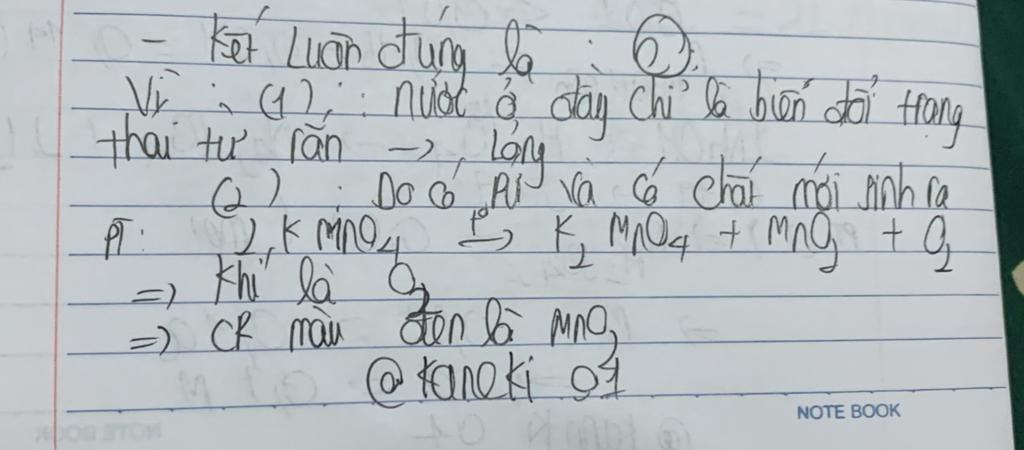 - Kết Luận đúng là : (2).
Vì : (1) : nước ở đây chỉ là biến đổi trạng
thái từ rắn -> lỏng
(2) : Do có PỨ và có chất mới sinh ra
PT: 2KMnO4 t°-> K2MnO4 + MnO2 + O2
=> Khí là O2
=> CR màu đen là MnO2
@kaneki 07
NOTE BOOK